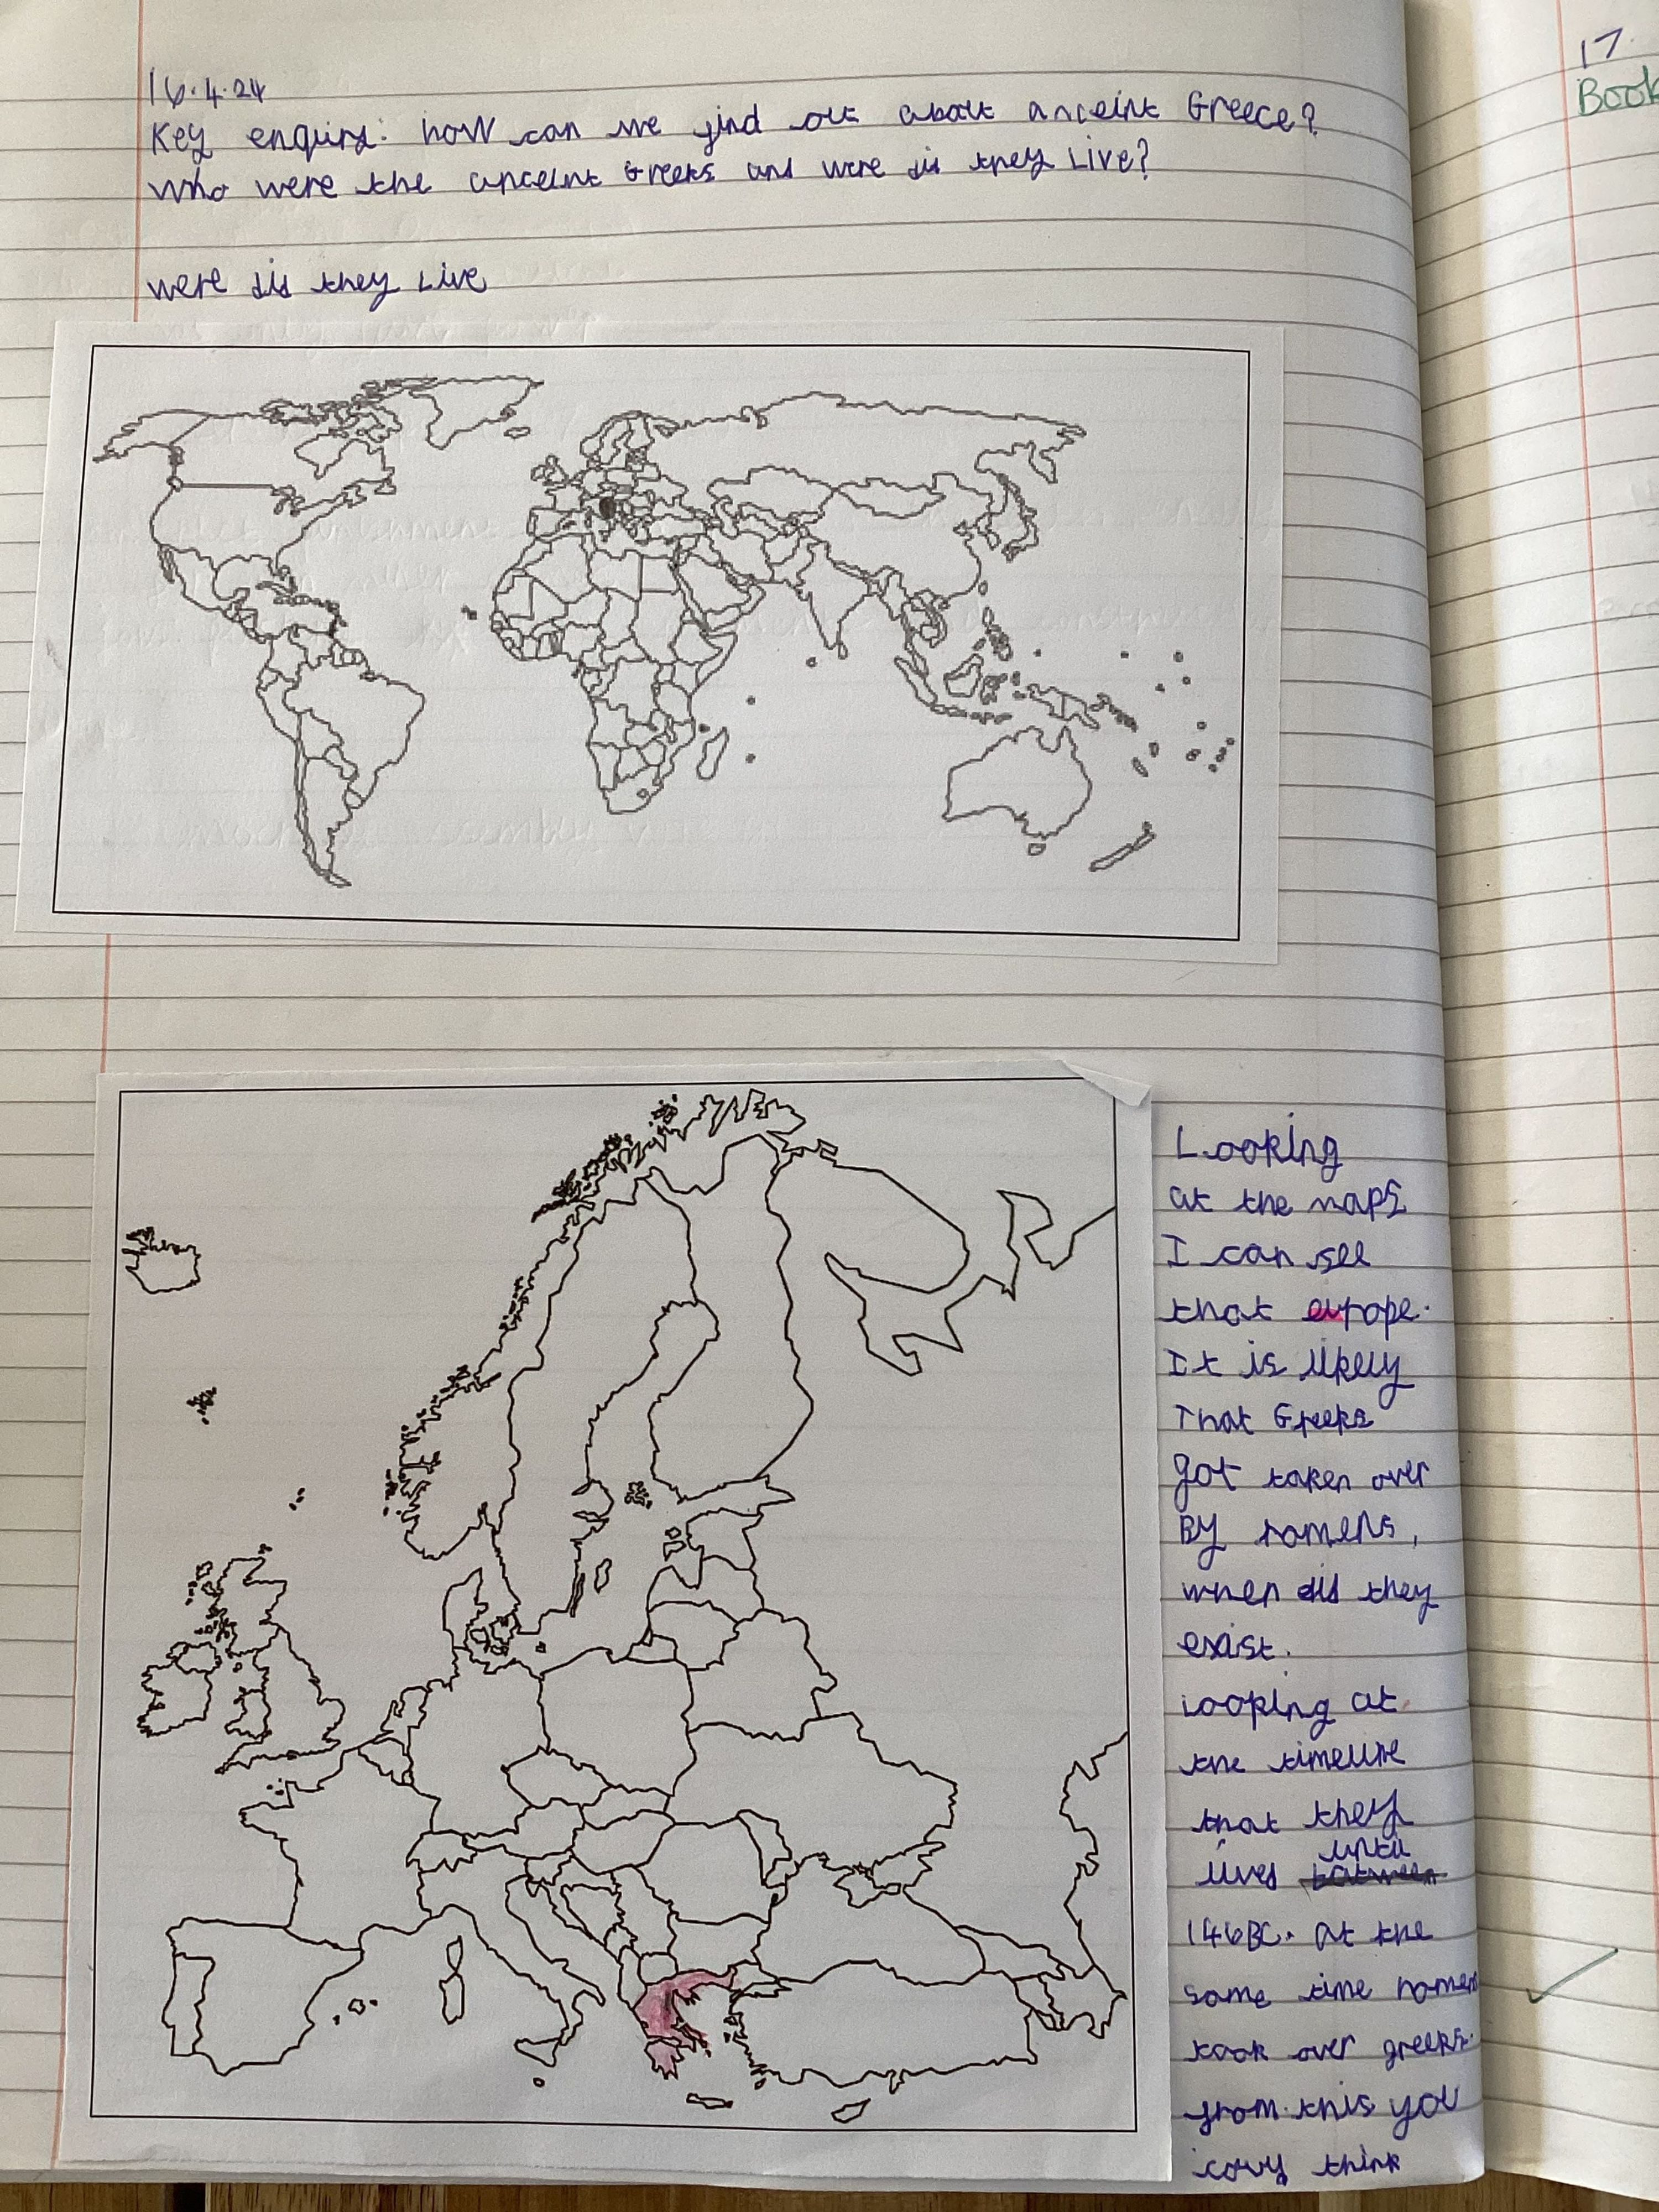 16.4.24
Key enquiry: how can we find out about anceint Greece?
Who were the anceint Greeks and were did they Live?
were did they Live
Looking
at the maps
I can see
that europe.
It is likely
That Greeks
got taken over
By romens,
when did they
exist.
Looking at
the timeline
that they
until
lived between
146BC. at the
same time romens
took over greeks.
from this you
think
17.
Book